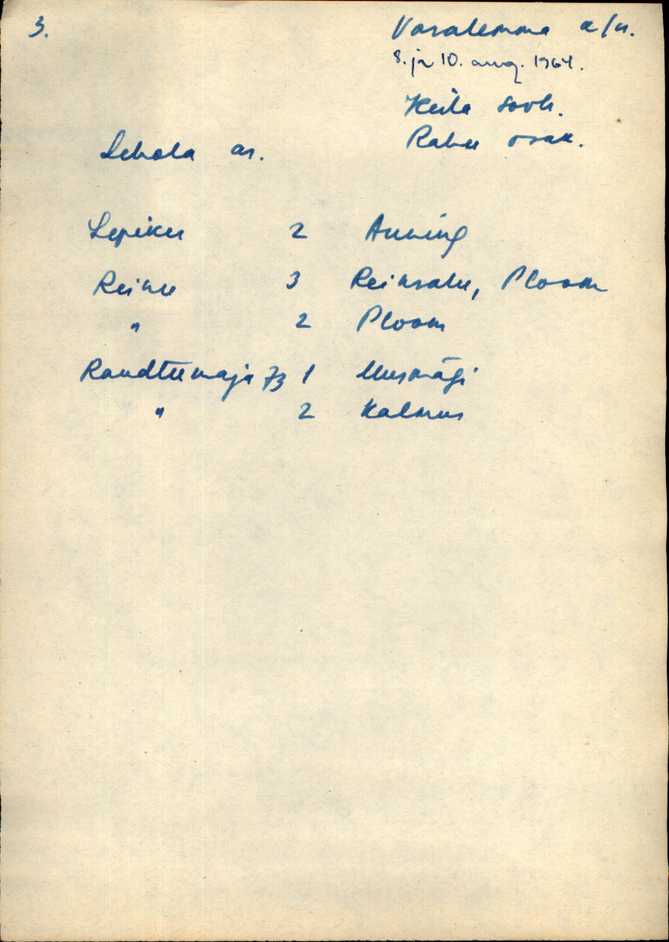 3.
Vasalemma a/n.
8. ja 10. aug. 1964.
Keila sovh.
Rahu osak.
Lehola as.
Lepiku 2 Anning
Reinu 3 Reinsalu, Ploom
" 2 Ploom
Raudteemaja 73 1 Uusmägi
" 2 Kalmus